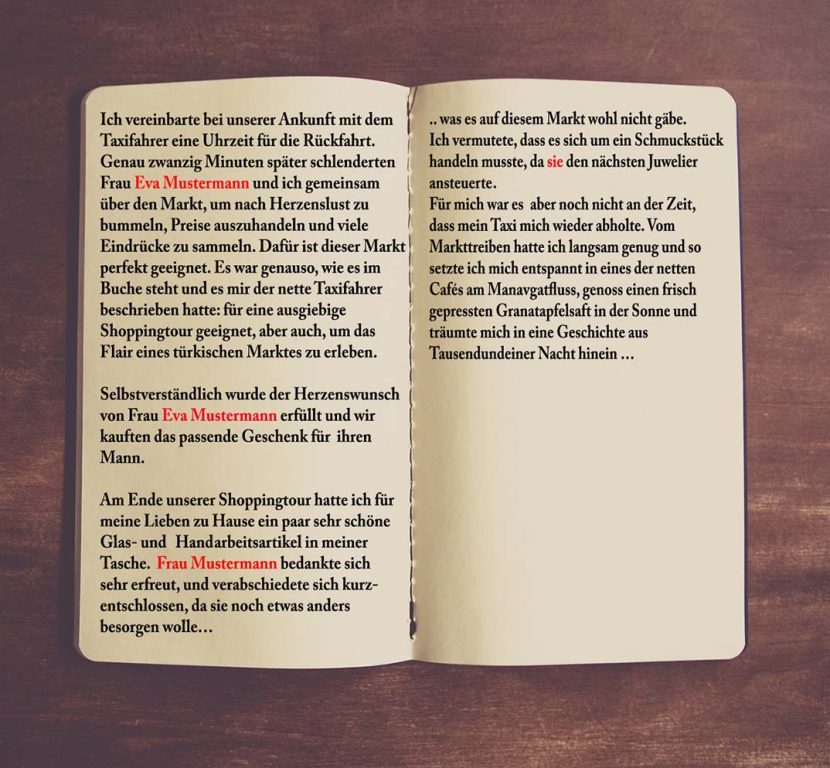 Ich vereinbarte bei unserer Ankunft mit dem
Taxifahrer eine Uhrzeit für die Rückfahrt.
Genau zwanzig Minuten später schlenderten
Frau Eva Mustermann und ich gemeinsam
über den Markt, um nach Herzenslust zu
bummeln, Preise auszuhandeln und viele
Eindrücke zu sammeln. Dafür ist dieser Markt
perfekt geeignet. Es war genauso, wie es im
Buche steht und es mir der nette Taxifahrer
beschrieben hatte: für eine ausgiebige
Shoppingtour geeignet, aber auch, um das
Flair eines türkischen Marktes zu erleben.
Selbstverständlich wurde der Herzenswunsch
von Frau Eva Mustermann erfüllt und wir
kauften das passende Geschenk für ihren
Mann.
Am Ende unserer Shoppingtour hatte ich für
meine Lieben zu Hause ein paar sehr schöne
Glas- und Handarbeitsartikel in meiner
Tasche. Frau Mustermann bedankte sich
sehr erfreut, und verabschiedete sich kurz-
entschlossen, da sie noch etwas anders
besorgen wolle…
.. was es auf diesem Markt wohl nicht gäbe.
Ich vermutete, dass es sich um ein Schmuckstück
handeln musste, da sie den nächsten Juwelier
ansteuerte.
Für mich war es aber noch nicht an der Zeit,
dass mein Taxi mich wieder abholte. Vom
Markttreiben hatte ich langsam genug und so
setzte ich mich entspannt in eines der netten
Cafés am Manavgatfluss, genoss einen frisch
gepressten Granatapfelsaft in der Sonne und
träumte mich in eine Geschichte aus
Tausendundeiner Nacht hinein …